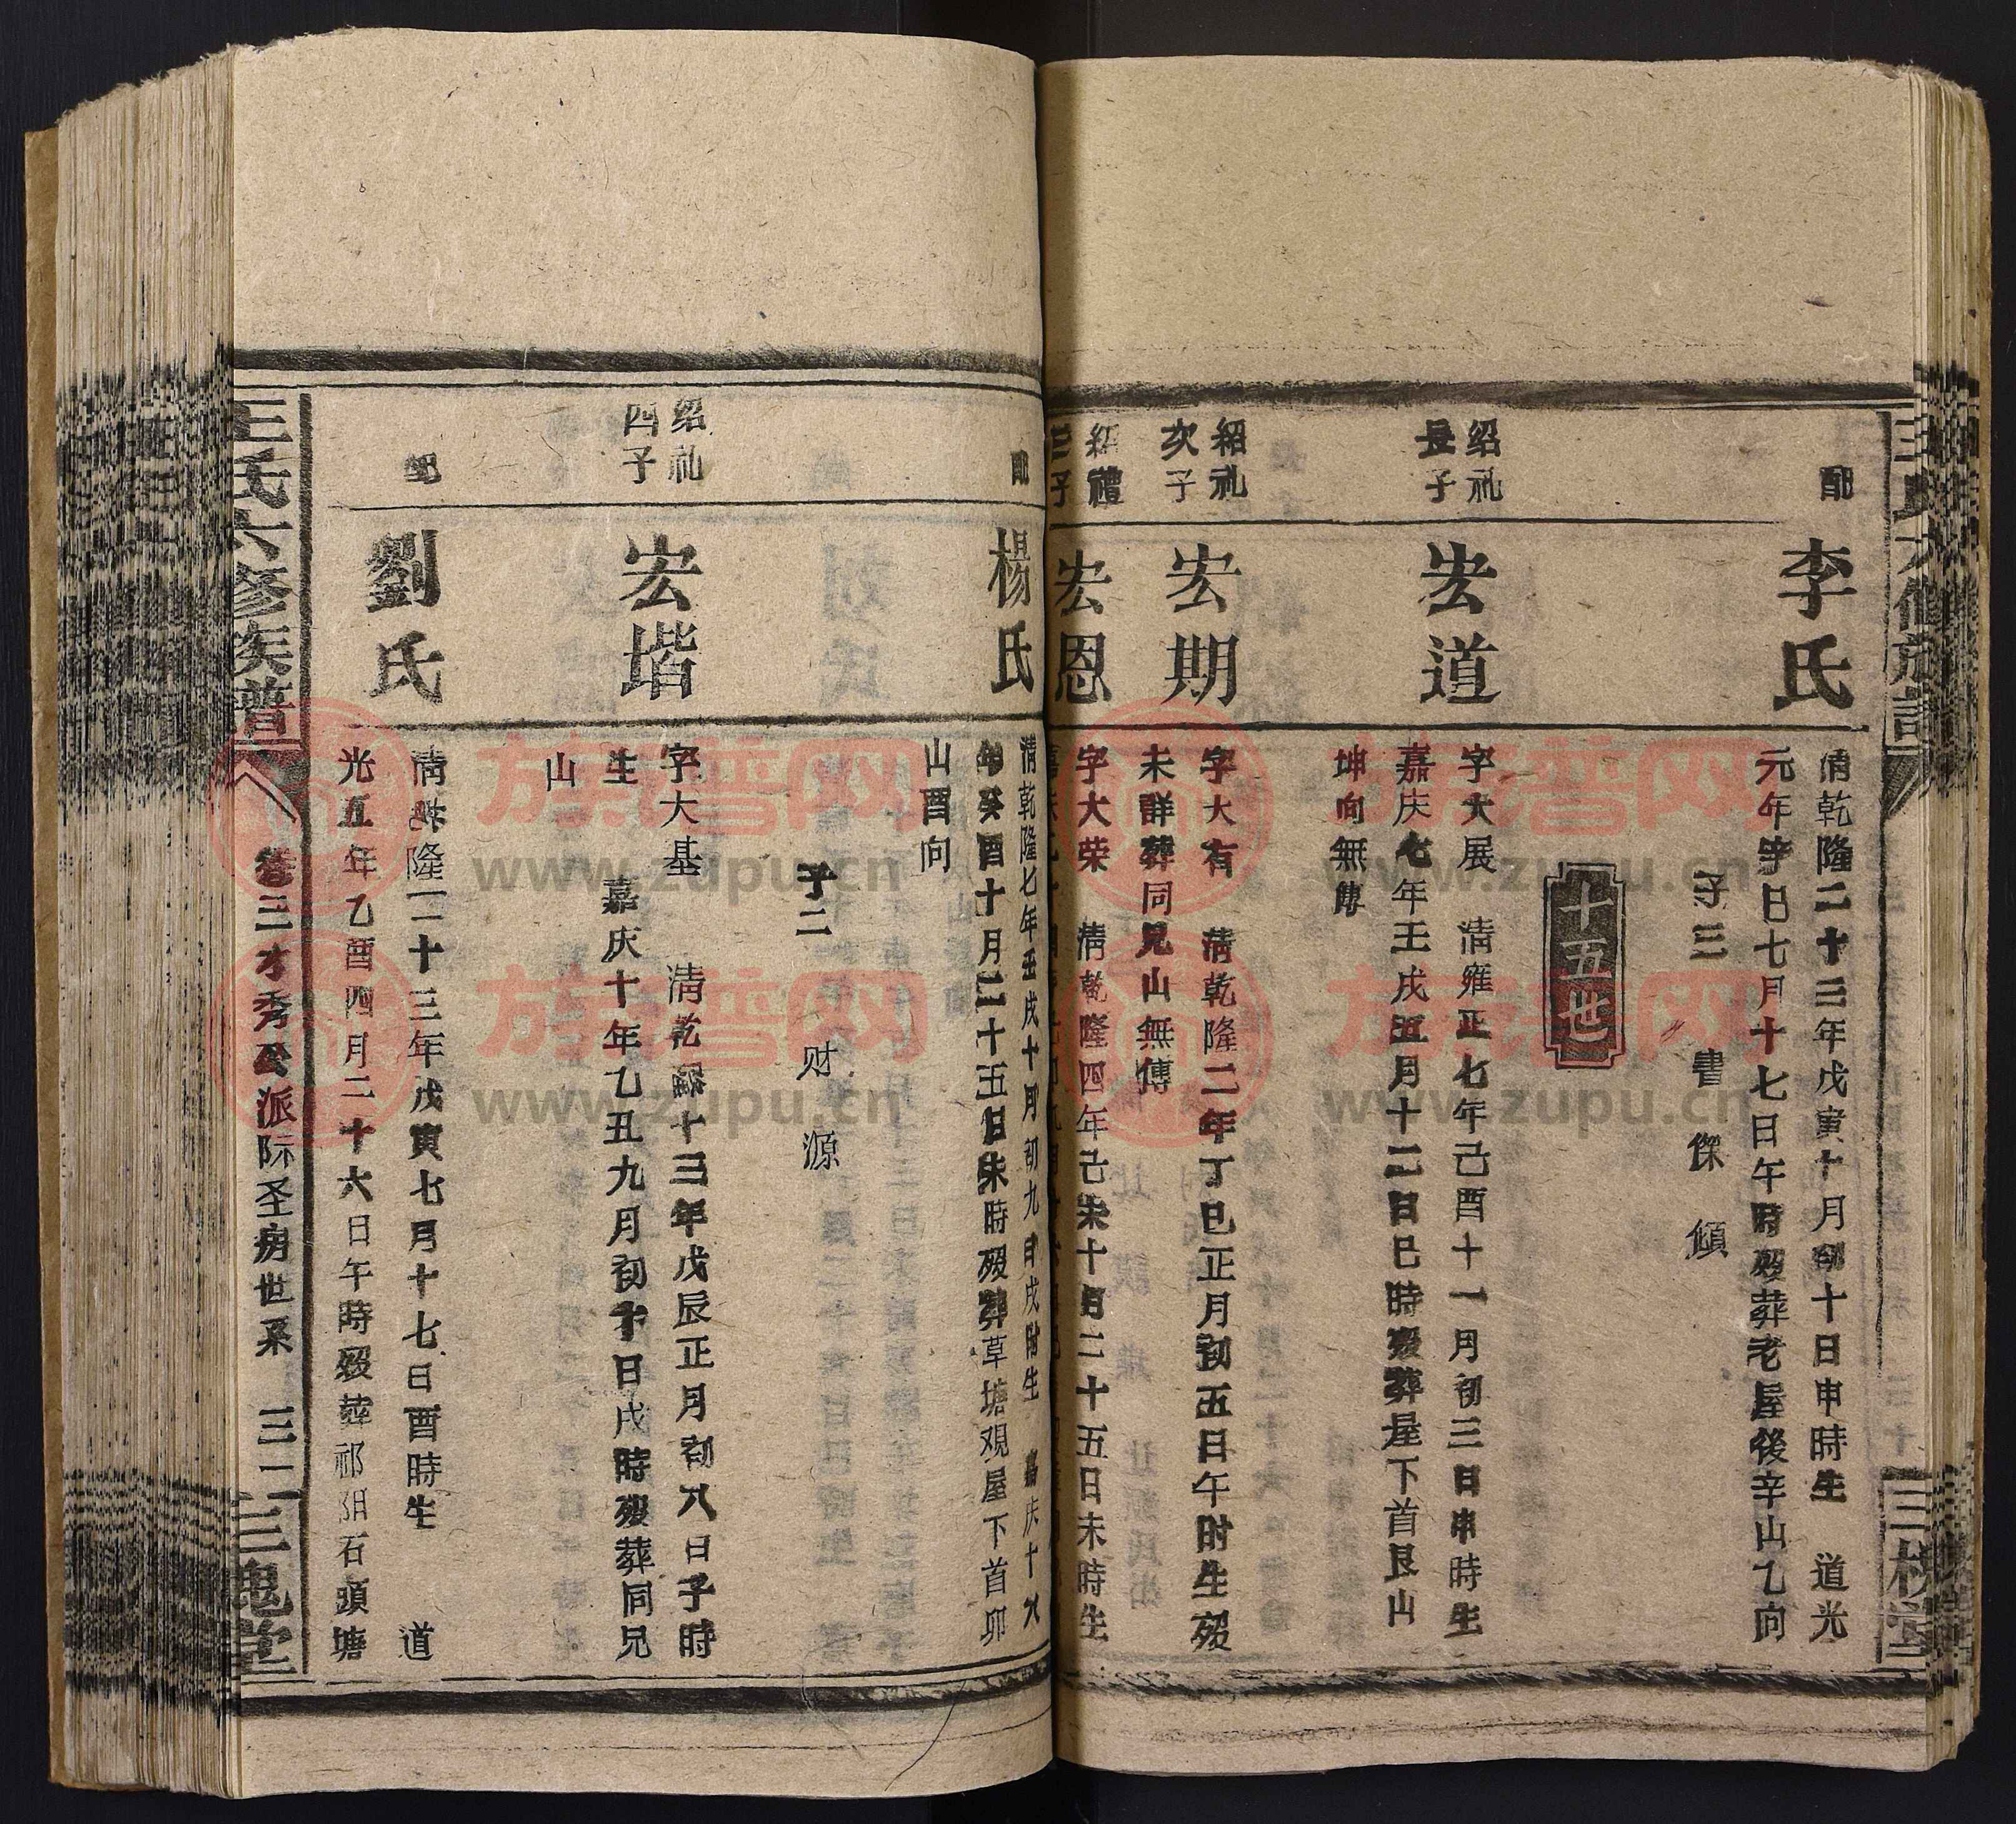 配
李氏
清乾隆二十三年戊寅十月初十日申時生　道光
元年辛巳七月十七日午時歿葬老屋後辛山乙向
子三　書　傑　傾
十五世
绍礼
長子
宏道
字大展　清雍正七年己酉十一月初三日申時生
嘉庆七年壬戌五月十二日巳時歿葬屋下首艮山
坤向無傳
绍礼
次子
宏期
字大有　清乾隆二年丁巳正月初五日午时生歿
未詳葬同兄山無傳
紹禮
三子
宏恩
字大荣　清乾隆四年己未十月二十五日未時生
配
楊氏
清乾隆七年壬戌十月初九日戌时生　嘉庆十八
年癸酉十月二十五日未時歿葬草塘观屋下首卯
山酉向
子二　财　源
绍礼
四子
宏堦
字大基　清乾隆十三年戊辰正月初八日子時
生　嘉庆十年乙丑九月初十日戌時歿葬同兄
山
配
劉氏
清乾隆二十三年戊寅七月十七日酉時生　道
光五年乙酉四月二十六日午時歿葬祁阳石頭塘
王氏六修族譜
卷三才秀公派际圣房世系　三二
三槐堂
族谱网
www.zupu.cn
族谱网
www.zupu.cn
族谱网
www.zupu.cn
族谱网
www.zupu.cn